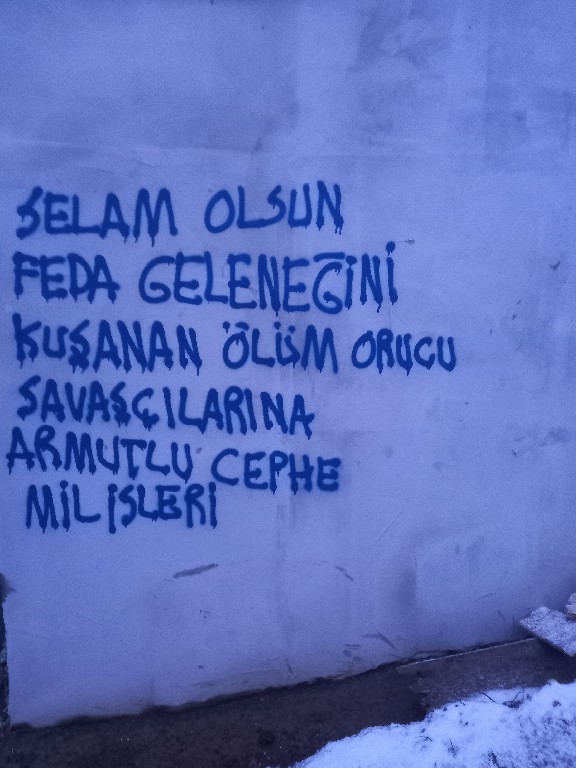 SELAM OLSUN
FEDA GELENEĞİNİ
KUŞANAN ÖLÜM ORUCU
SAVAŞÇILARINA
ARMUTLU CEPHE
MİLİSLERİ